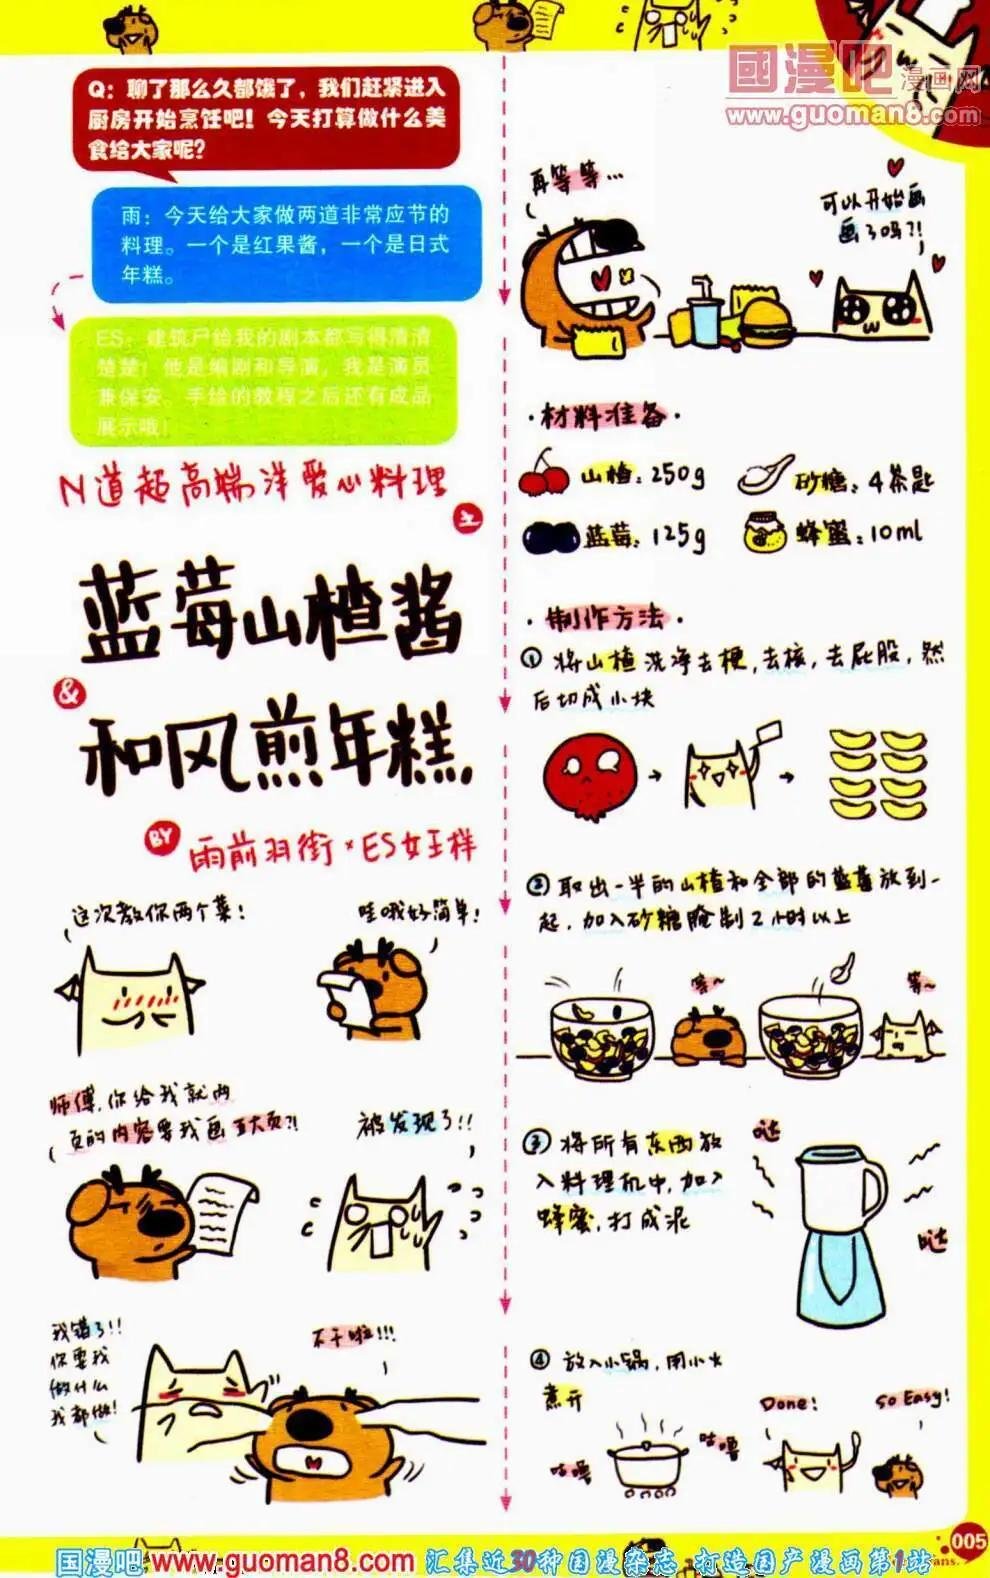 國漫吧
漫画网
www.guoman8.com
Q：聊了那么久都饿了，我们赶紧进入
厨房开始烹饪吧！今天打算做什么美
食给大家呢？
雨：今天给大家做两道非常应节的
料理。一个是红果酱，一个是日式
年糕。
ES：建筑尸给我的剧本都写得清清
楚楚！他是编剧和导演，我是演员
兼保安。手绘的教程之后还有成品
展示哦！
N道超高端洋爱心料理
之
蓝莓山楂酱
&
和风煎年糕
BY
雨前羽街×ES女王样
这次教你两个菜！
哇哦好简单！
师傅，你给我就两
页的内容要我画五大页?!
被发现了!!
我错了!!
你要我
做什么
我都做！
不干啦!!!
再等等…
可以开始画
画了吗?!
·材料准备·
山楂：250g
砂糖：4茶匙
蓝莓：125g
蜂蜜：10ml
·制作方法·
① 将山楂洗净去梗，去核，去屁股，然
后切成小块
② 取出一半的山楂和全部的蓝莓放到一
起，加入砂糖腌制2小时以上
等~
等~
③ 将所有东西放
入料理机中，加入
蜂蜜，打成泥
哒
哒
④ 放入小锅，用小火
煮开
咕噜
咕噜
Done!
so Easy!
005
国漫吧 www.guoman8.com 汇集近30种国漫杂志 打造国产漫画第1站